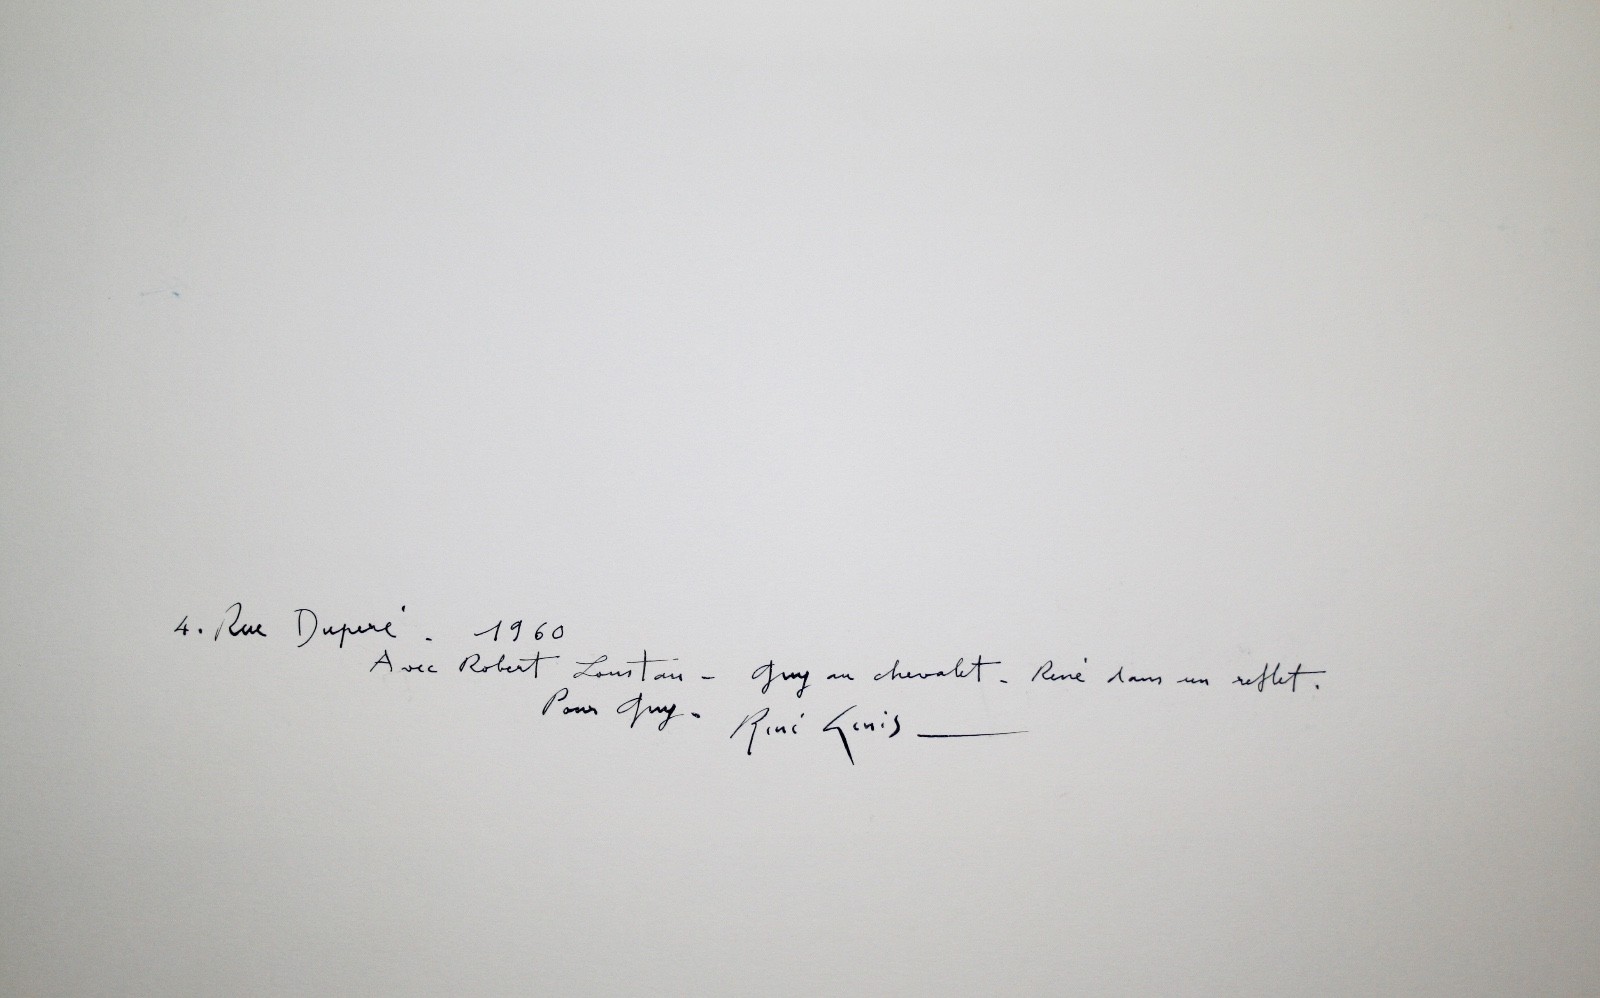 4. Rue Duperré. 1960
Avec Robert Loustau - Guy au chevalet - René dans un reflet.
Pour Guy. René Genis